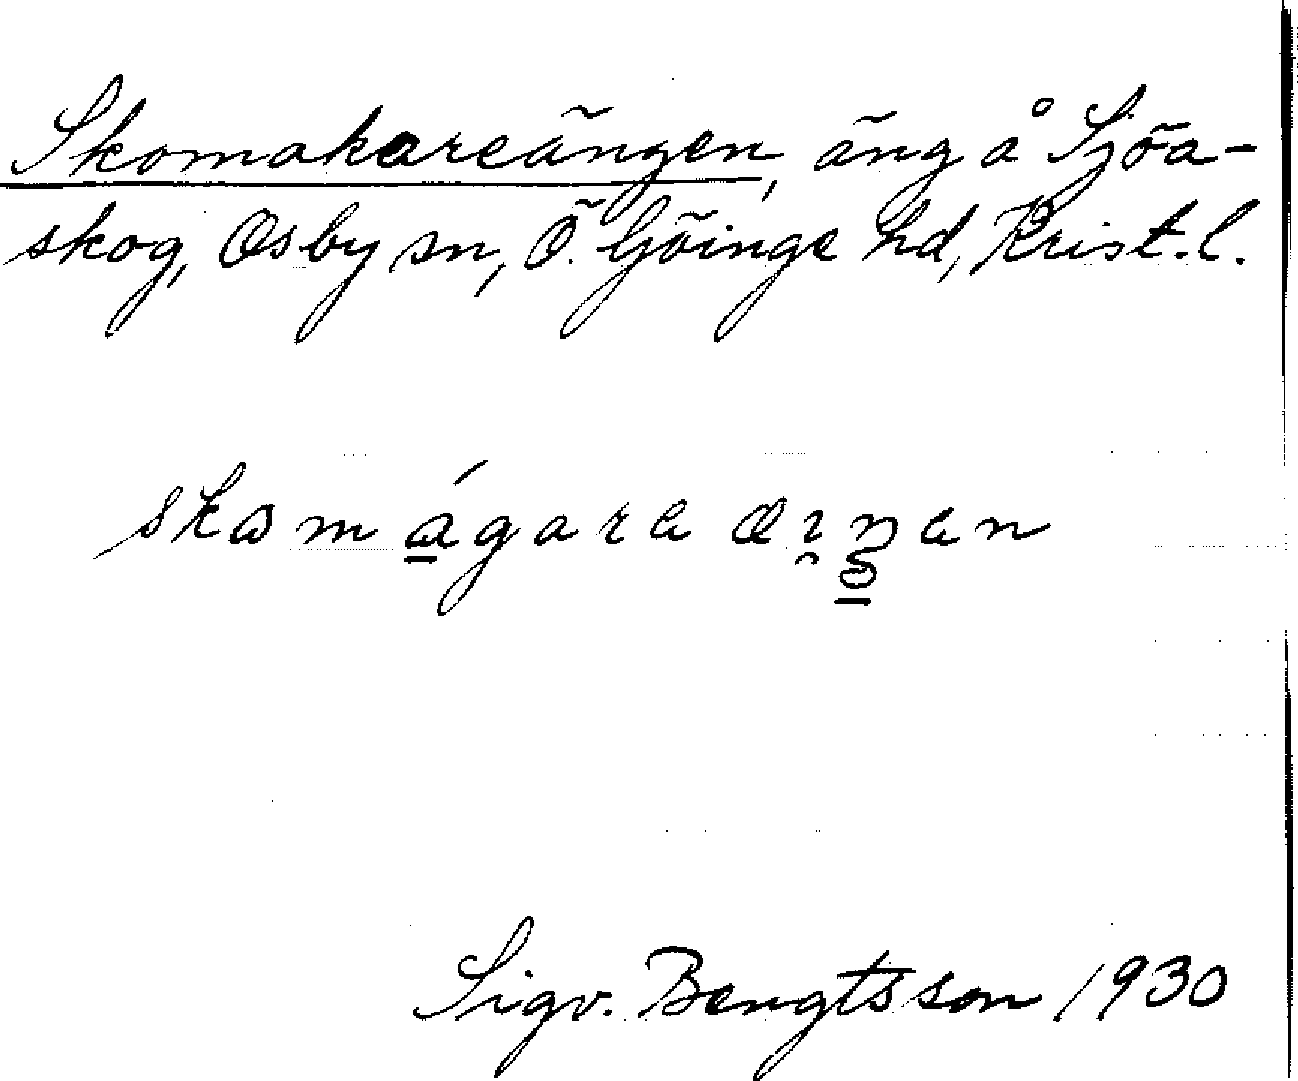 Skomakareängen, äng å Sjöa-
skog, Osby sn, Ö. Göinge hd, Krist. l.
Sigv. Bengtsson 1930